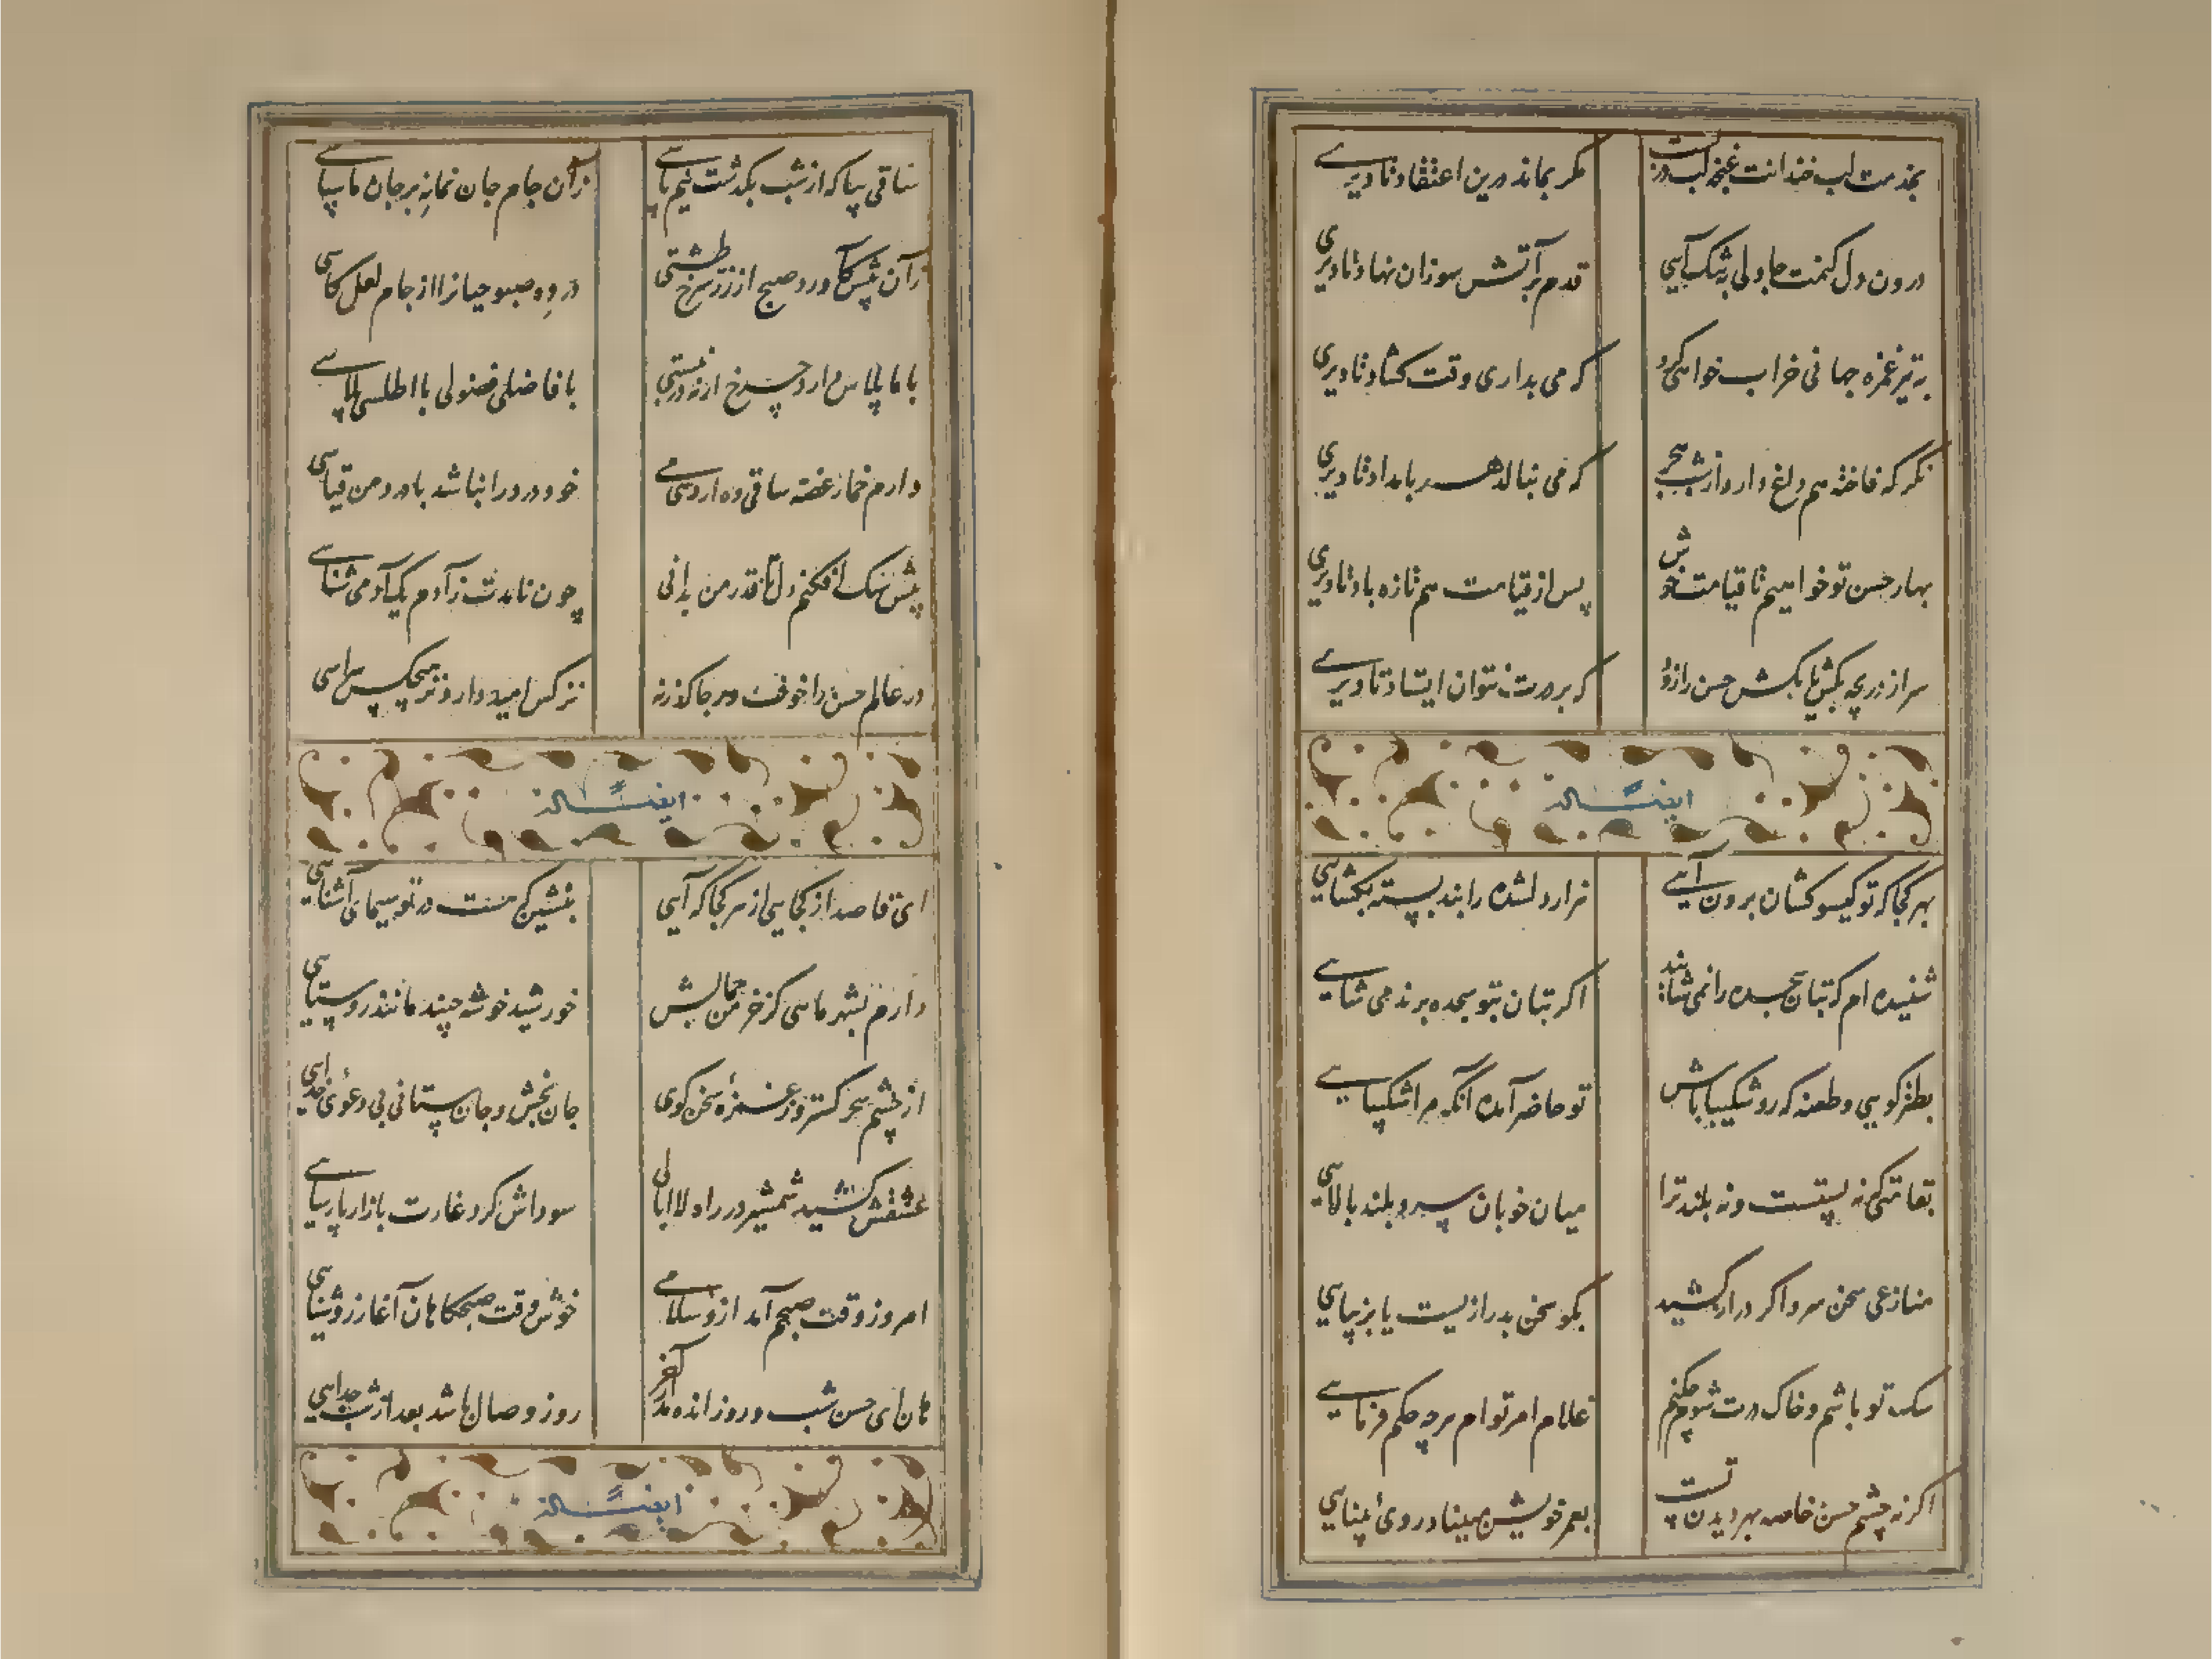 بخدمت لب خندانت غنچه لب در بست
مگر بماند درین اعتقاد تا دیری
درون دل کنمت جا ولی به تنگ آیی
قدم بر آتش سوزان نهاد تا دیری
به تیر غمزه جهانی خراب خواهی کرد
که می بداری وقت کشاد تا دیری
نگر که فاخته هم داغ دارد از شب هجر
که می بنالد هر بامداد تا دیری
بهار حسن تو خواهیم تا قیامت خوش
پس از قیامت هم تازه باد تا دیری
سر از دریچه بکش یا بکش حسن را زود
که بر درت نتوان ایستاد تا دیری
ایضاً له
بهر کجا که تو گیسو کشان برون آیی
هزار دلشده را بند بسته بکشایی
شنیده ام که بتان سجده را نمی شایند
اگر بتان بتو سجده برند می شایی
بطنز گویی و طعنه که رو شکیبا باش
تو حاضر آمده آنگه مرا شکیبایی
بقامتی که نه پستست و نه بلند ترا
میان خوبان سرو بلند بالایی
منازعی سخن سرو اگر دراز کشید
بگو سخن بدرازیست یا بزیبایی
سگ تو باشم و خاک درت شوم چکنم
غلام امر توام هرچه حکم فرمایی
اگر نه چشم حسن خاصه بهر دیدن تست
بعمر خویش مبینا درو کی بینایی
ساقی بیا که از شب بگذشت نیم پاسی
زآن جام جان نمانه بر جان ما سپاسی
زآن پیش کآورد صبح از زر سرخ طشتی
در ده صبوحیانرا از جام لعل کاسی
با ما پلاس دارد چرخ ار نه در نبستی
با فاضلی فضولی با اطلسی پلاسی
دارم خمار غصه ساقی ده داروئی
خود درد را نباشد با درد من قیاسی
پیش سگ افکنم دل تا قدر من بدانی
چون نامدت ز آدم یک آدمی شناسی
در عالم حسن را خوفست و هر جا که زنه
نز کس امید دارد نز هیچکس هراسی
ایضاً له
ای قاصد از کجایی از هر کجا که آیی
بنشین که هست در تو سیمای آشنایی
دارم بشهر ماهی کز خرمن جمالش
خورشید خوشه چیند مانند روستایی
از چشم سحر گستر وز غمزه سخن گوی
جان بخش و جان ستانی بی دعوئ خدایی
عشقش کشید شمشیر در راه لاابالی
سوداش کرد غارت بازار پارسایی
امروز وقت صبحم آمد ازو سلامی
خوش وقت صبحگاهان آغاز روشنایی
هان ای حسن شب و روز انده مدار آخر
روز وصال باشد بعد از شب جدایی
ایضاً له